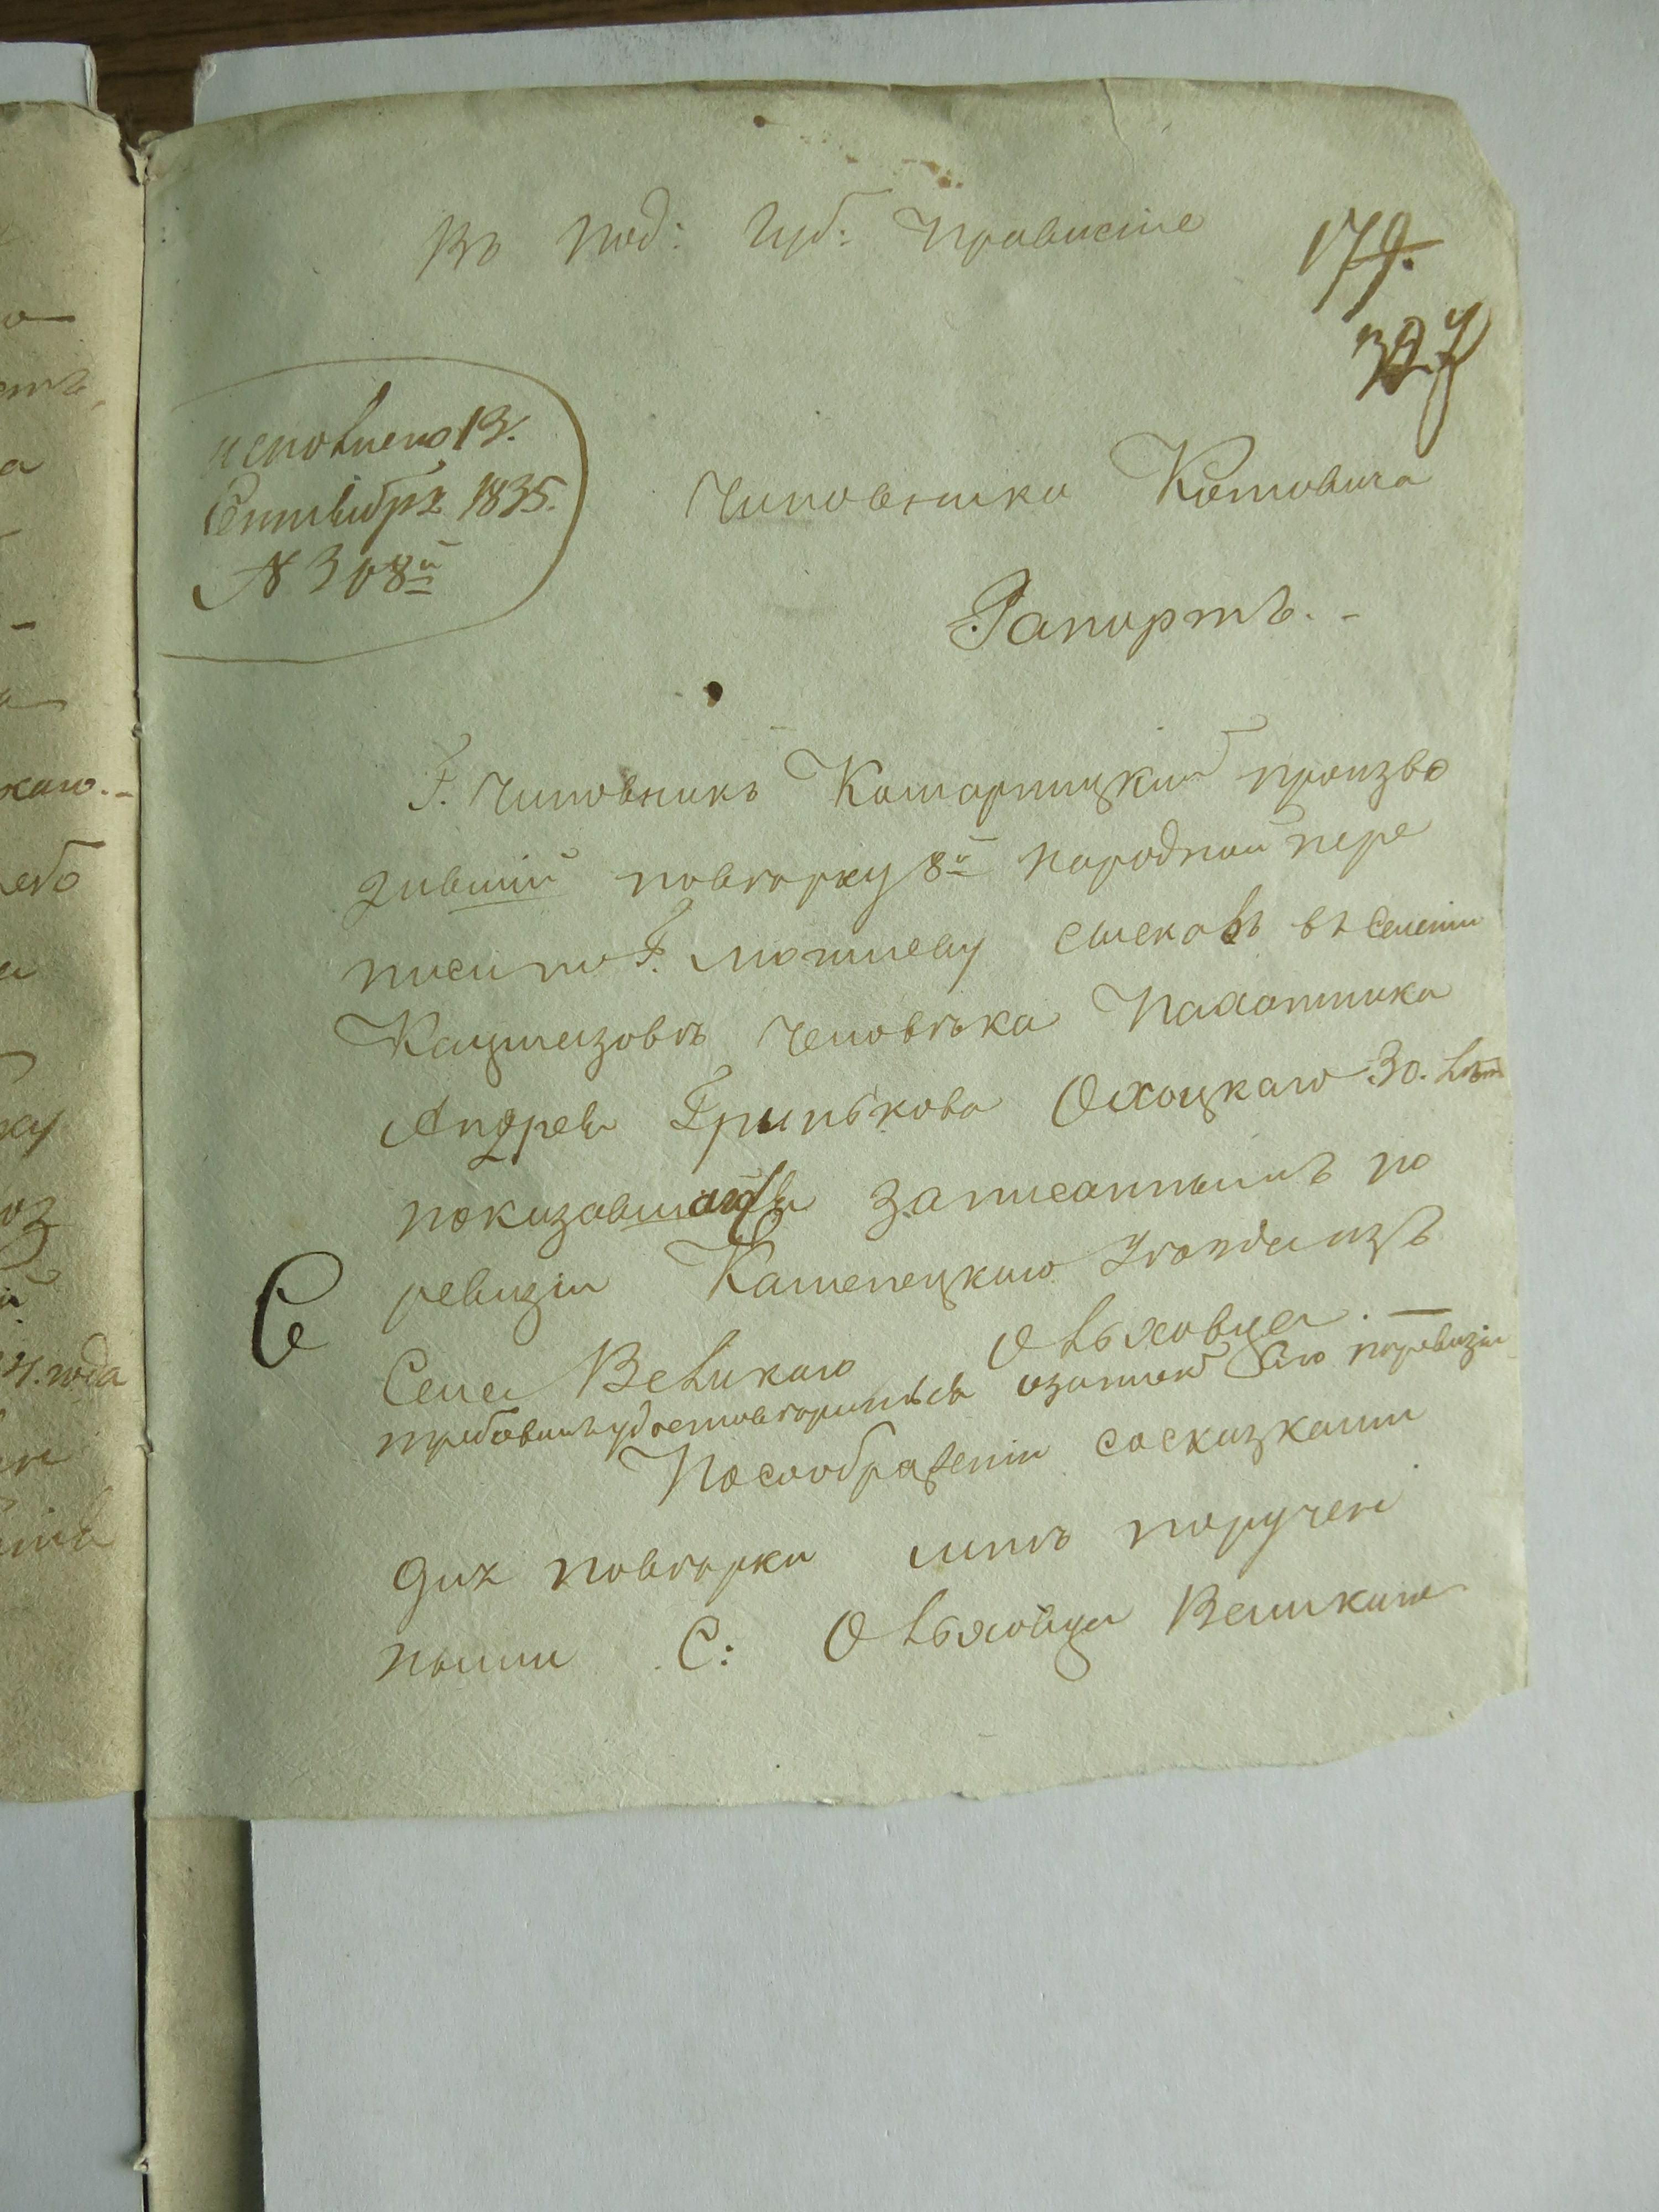 Въ Под: Губ: Правленіе
179.
327
исполнено 13.
Сентября 1835.
N 308й
Чиновника Котовича
Рапортъ. -
Г. Чиновникъ Комарницкій произво
дившій повѣрку 8й народной пере
писи по Г. Могилеву сыскалъ въ селеніи
человѣка Пахатника
Андрея Гринькова Охоцкаго 30. лѣтъ
показавшагося записаннымъ по
ревизіи Каменецкаго Уѣзда изъ
Села Великаго Ольховца. —
требовалъ удостовѣриться о запискѣ Его по ревизіи
По соображеніи со сказками
для повѣрки мнѣ поручен
ными С: Ольховца Великаго